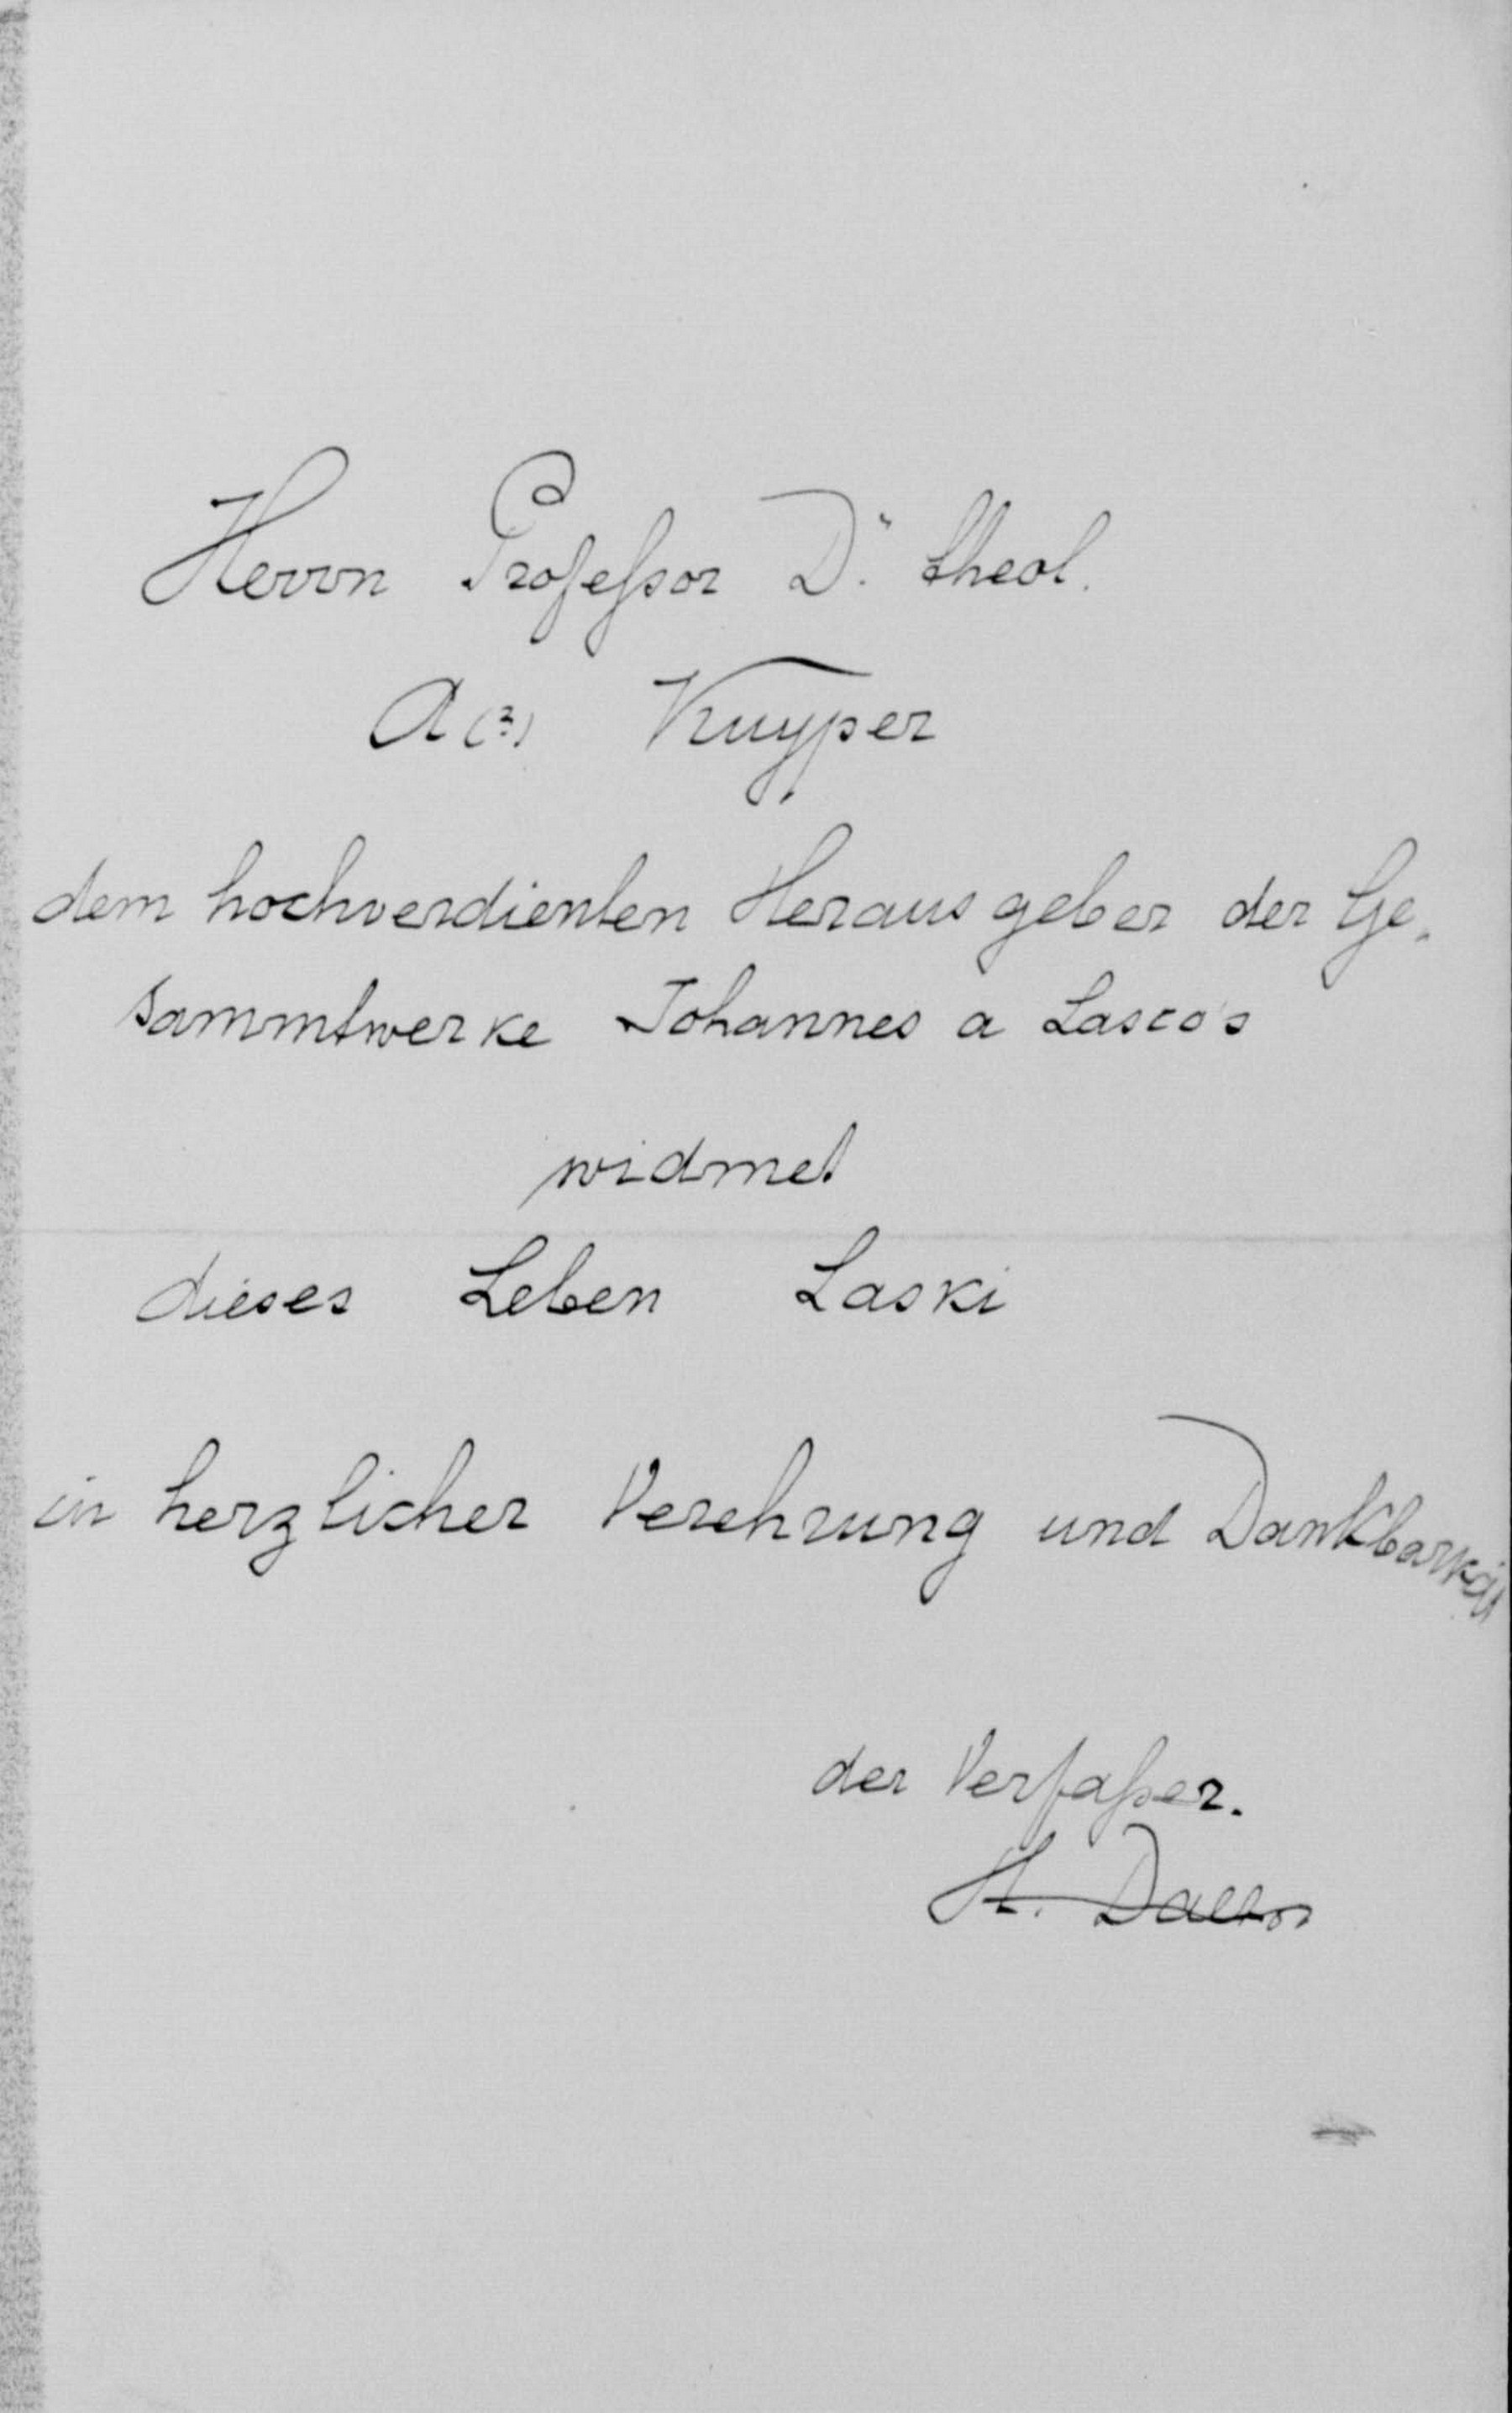 Herrn Professor Dr. theol.
A (?) Kuyper
dem hochverdienten Herausgeber der Ge-
sammtwerke Johannes a Lasco's
widmet
dieses Leben Laski
in herzlicher Verehrung und Dankbarkeit
der Verfaßer.
H. Dalton